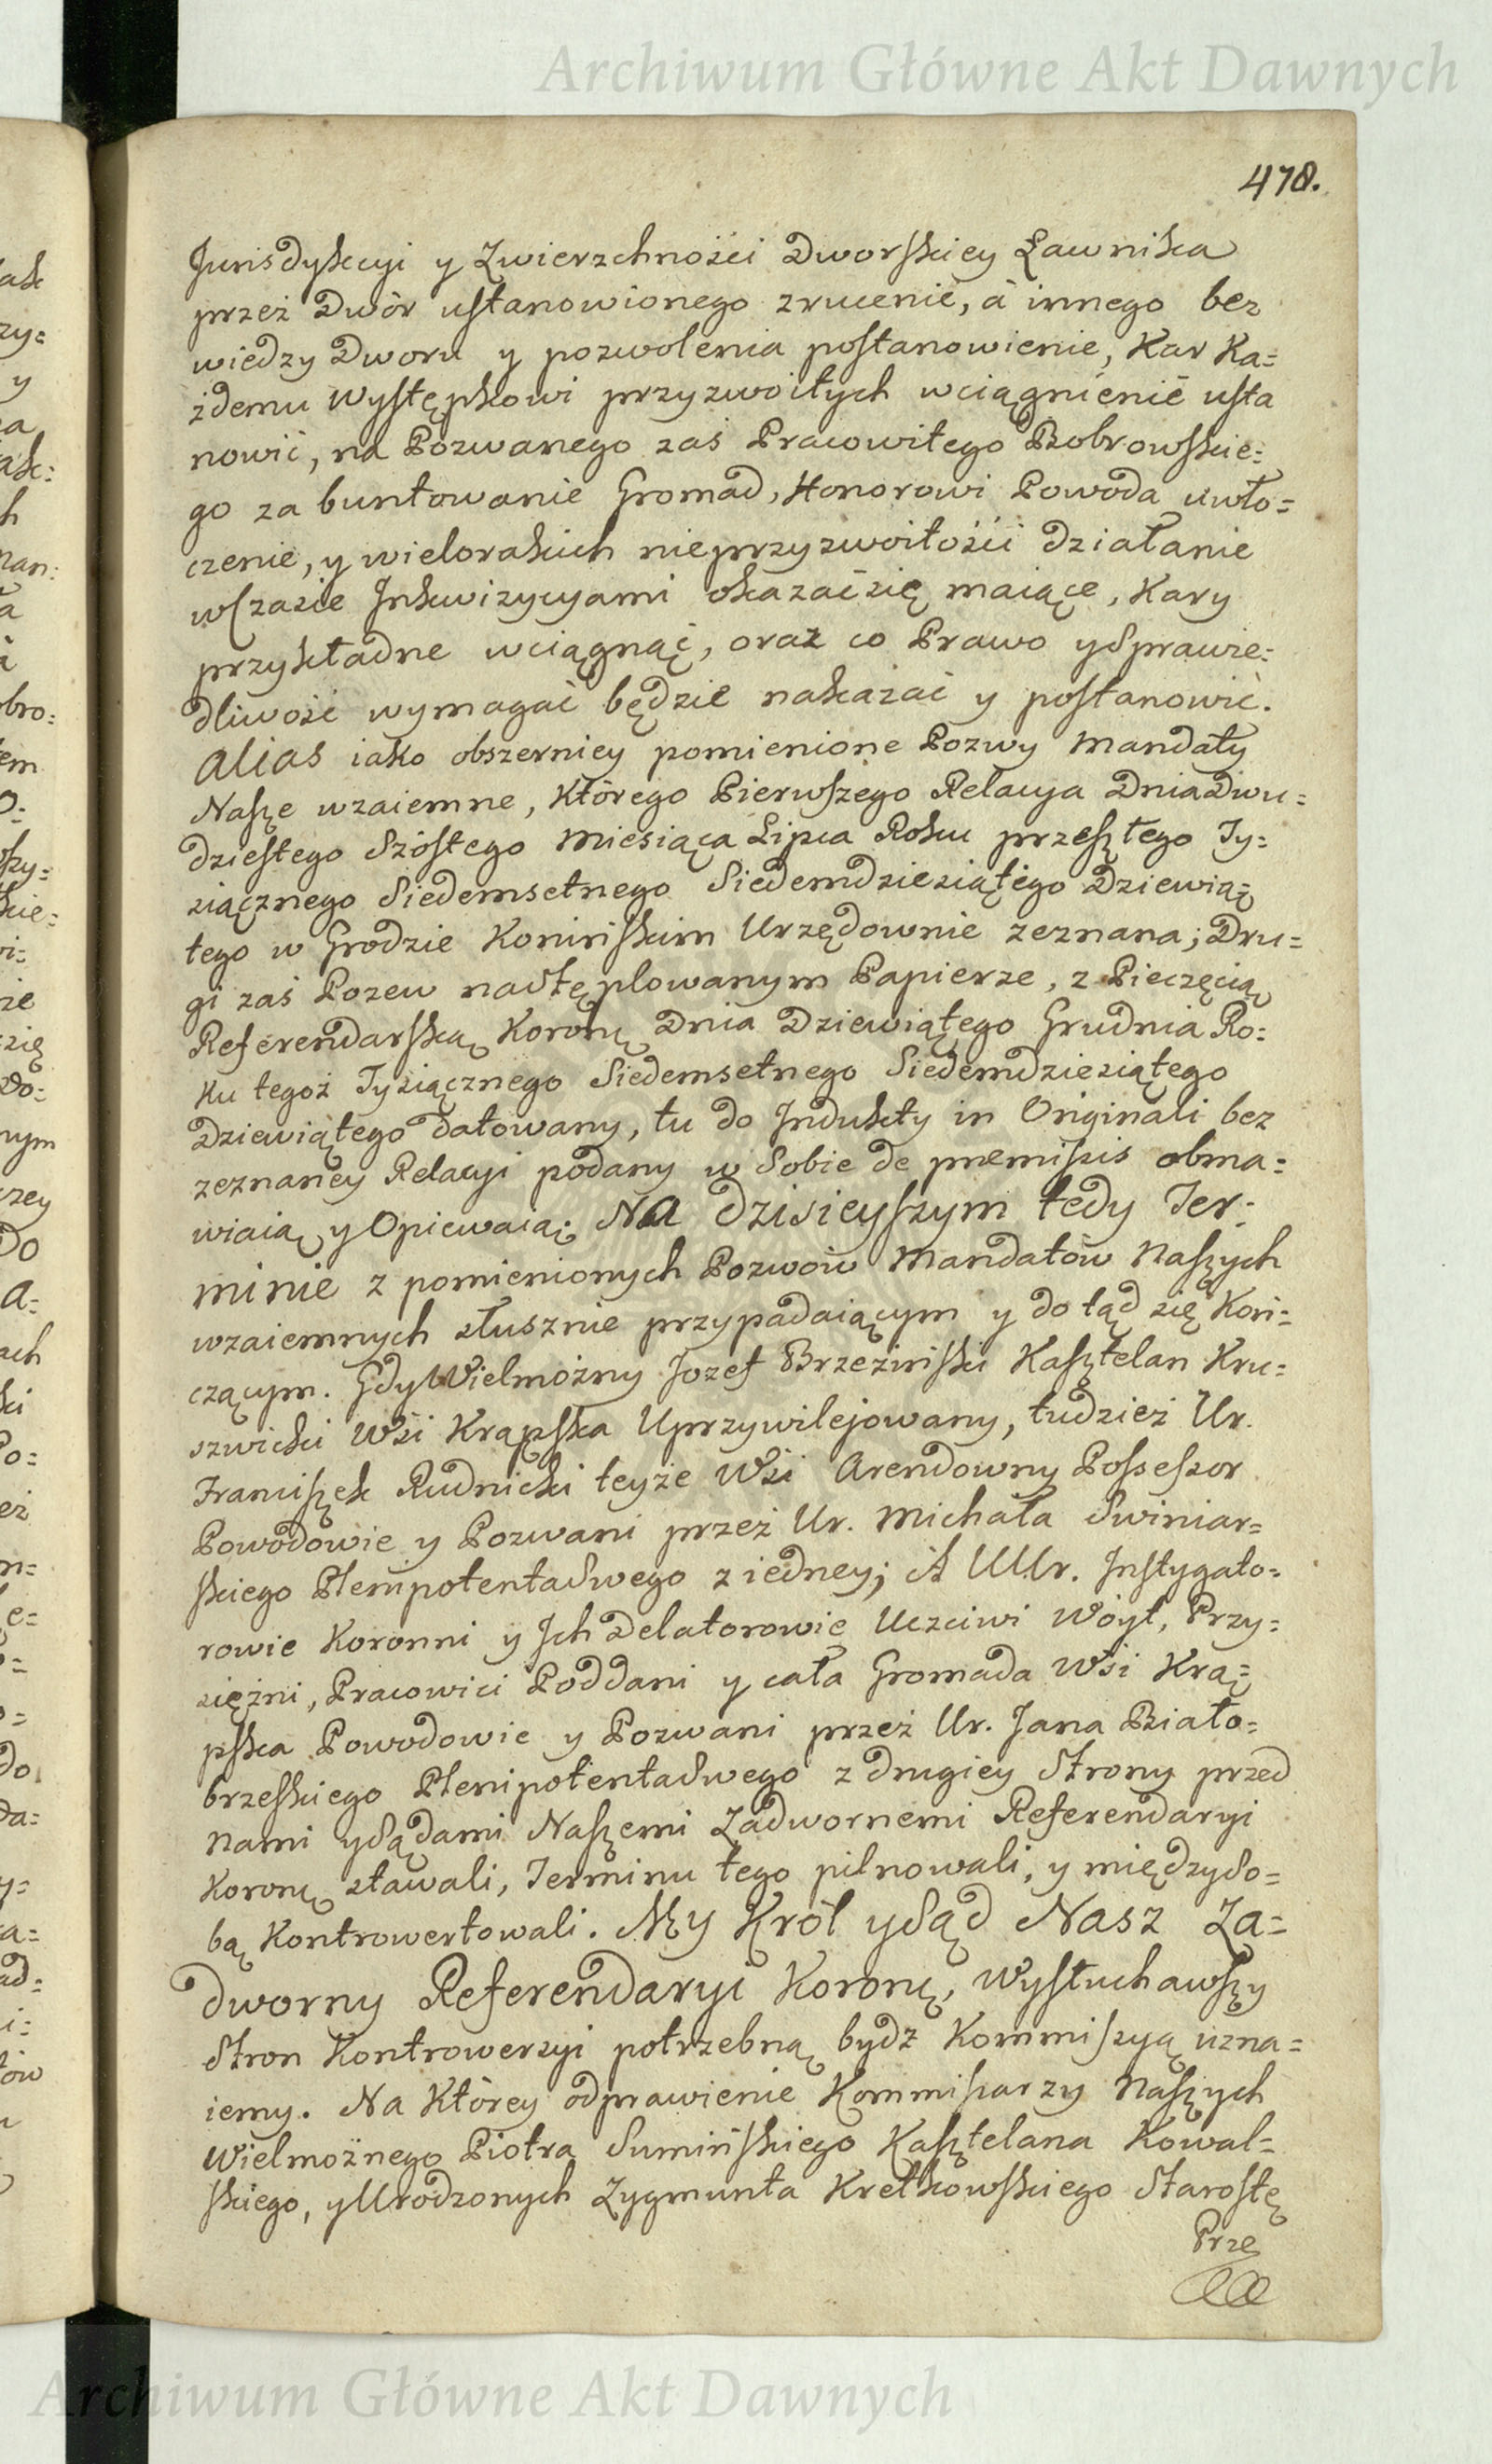 Archiwum Główne Akt Dawnych
478.
Jurisdykcyi y Zwierzchności Dworskiey Ławnika
przez Dwór ustanowionego zrucenie, á innego bez
wiedzy Dworu y pozwolenia postanowienie, Kar Ka=
żdemu Występkowi przyzwoitych wciągnienié usta
nowić, na Pozwanego zaś Pracowitego Bobrowskie=
go za buntowanie Gromad, Honorowi Powoda uwło=
czenie, y wielorakich nieprzyzwoitości działanie
wczasie Inkwizycyami okazać się maiące, Kary
przykładne wciągnąć, oraz co Prawo y Sprawie=
dliwość wymagać będzie nakazać y postanowić.
Alias iako obszerniey pomienione Pozwy Mandaty
Nasze wzaiemne, Którego Pierwszego Relacya Dnia Dwu=
dziestego Szóstego Miesiąca Lipca Roku przeszłego Ty=
siącznego Siedemsetnego Siedemdziesiątego Dziewią=
tego w Grodzie Konińskim Urzędownie zeznana; Dru=
gi zaś Pozew na Stęplowanym Papierze, z Pieczęcią
Referendarską Koronną Dnia Dziewiątego Grudnia Ro=
Ku tegoż Tysiącznego Siedemsetnego Siedemdziesiątego
Dziewiątego datowany, tu do Indukty in Originali bez
zeznaney Relacyi podany w Sobie de premissis obma=
wiaią y Opiewaią; Na dzisieyszym tedy Ter=
minie z pomienionych Pozwów Mandatów Naszych
wzaiemnych słusznie przypadaiącym y do tąd się Koń=
czącym. Gdy Wielmożny Jozef Brzeziński Kasztelan Kru=
szwicki Wsi Krąpska Uprzywilejowany, tudzież Ur.
Franciszek Rudnicki teyże Wsi Arendowny Possessor
Powodowie y Pozwani przez Ur. Michała Swiniar=
skiego Plenipotenta Swego z iedney; A UUr. Instygato=
rowie Koronni y Ich Delatorowie Uczciwi Wóyt, Przy=
siężni, Pracowici Poddani y cała Gromada Wsi Krą=
pska Powodowie y Pozwani przez Ur. Jana Biało=
brzeskiego Plenipotenta Swego z drugiey Strony przed
Nami y Sądami Naszemi Zadwornemi Referendaryi
Koronney stawali, Terminu tego pilnowali, y między So=
bą Kontrowertowali. My Król y Sąd Nasz Za=
dworny Referendaryi Koronney, Wysłuchawszy
Stron Kontrowersyi potrzebną bydź Kommissyą uzna=
iemy. Na Którey odprawienie Kommissarzy Naszych
Wielmożnego Piotra Sumińskiego Kasztelana Kowal=
skiego, y Urodzonych Zygmunta Kretkowskiego Starostę
Prze
Archiwum Główne Akt Dawnych